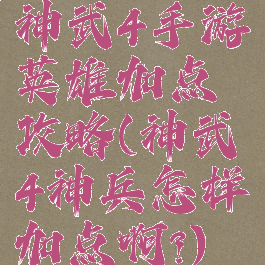 神武4手游
英雄加点
攻略(神武
4神兵怎样
加点啊?)